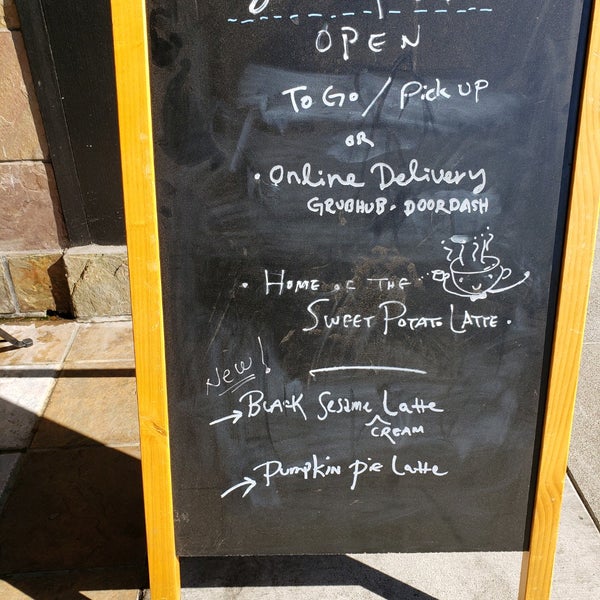 OPEN
To Go / Pick up
OR
• Online Delivery
GRUBHUB • DOORDASH
• Home of the
Sweet Potato Latte •
New!
→ Black Sesame ^ Latte
CREAM
→ Pumpkin pie Latte